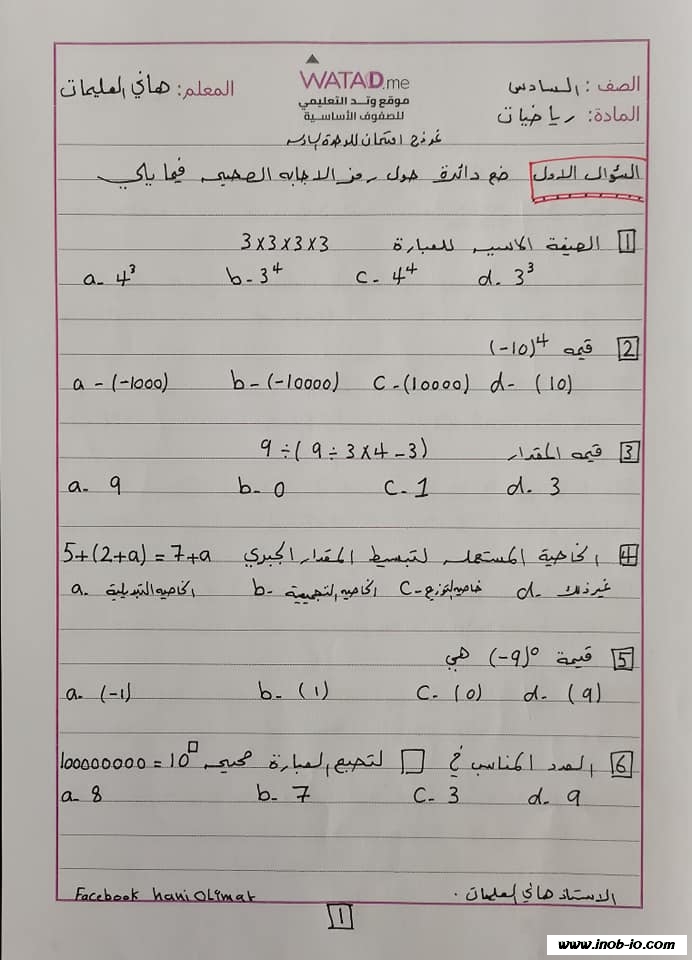 الصف : السادس
WATAD.me
المعلم: هاني العليمات
المادة: رياضيات
موقع وتد التعليمي
للصفوف الأساسية
نموذج امتحان للوحدة السادسه
السؤال الاول ضع دائرة حول رمز الاجابه الصحيحه فيما يلي
1 الصيغة الاسيه للعبارة 3x3x3x3
a- 4³ b- 3⁴ c- 4⁴ d- 3³
2 قيمه (-10)⁴
a - (-1000) b- (-10000) c - (10000) d- (10)
3 قيمه المقدار 9 ÷ (9 ÷ 3 x 4 - 3)
a- 9 b- 0 c- 1 d- 3
4 الخاصية المستعمله لتبسيط المقدار الجبري 5+(2+a) = 7+a
a- الخاصيه التبديلية b- الخاصيه التجميعية c- خاصيه التوزيع d- غير ذلك
5 قيمة (-9)⁰ هي
a- (-1) b- (1) c- (0) d- (9)
6 العدد المناسب في □ لتصبح العبارة صحيحه 100000000 = 10^□
a- 8 b- 7 c- 3 d- 9
Facebook hani OLimat
الاستاذ هاني العليمات .
1
www.inob-io.com